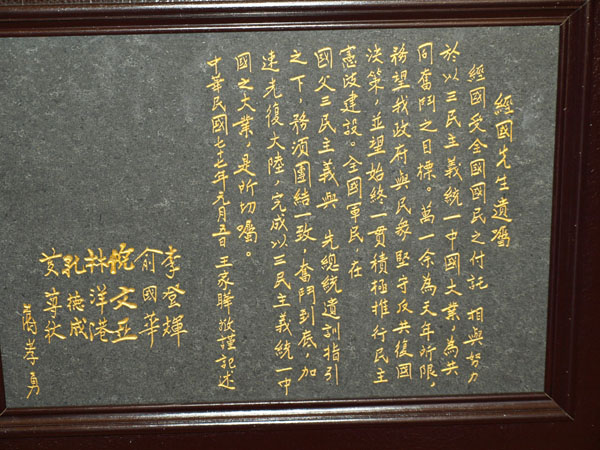 經國先生遺囑
經國受全國國民之付託 相與努力
於以三民主義統一中國大業，為共
同奮鬥之目標。萬一余為天年所限，
務望我政府與民眾堅守反共復國
決策，並望始終一貫積極推行民主
憲政建設。全國軍民，在
國父三民主義與 先總統遺訓指引
之下，務須團結一致，奮鬥到底，加
速光復大陸，完成以三民主義統一中
國之大業，是所切囑。
中華民國七十七年元月五日 王家驊敬謹記述
李登輝
俞國華
倪文亞
林洋港
孔德成
蔣孝勇